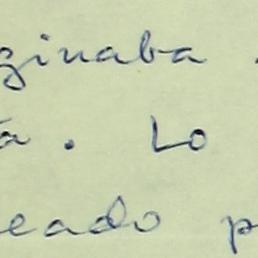 ginaba.
a. Lo
eado p